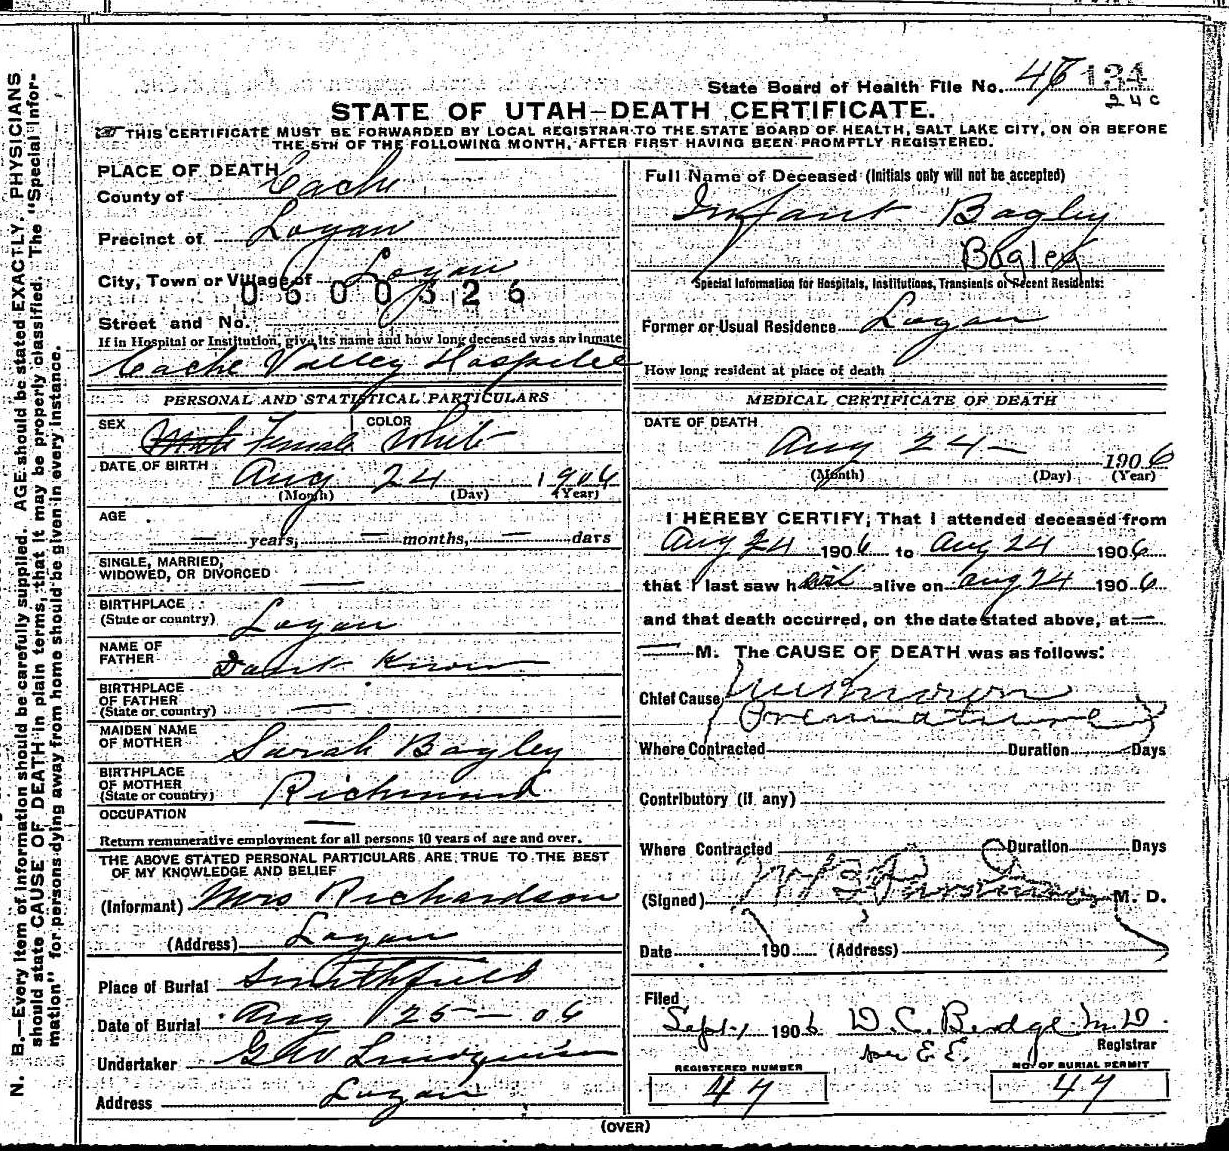 State Board of Health File No. 47 134
24c
STATE OF UTAH—DEATH CERTIFICATE.
THIS CERTIFICATE MUST BE FORWARDED BY LOCAL REGISTRAR TO THE STATE BOARD OF HEALTH, SALT LAKE CITY, ON OR BEFORE
THE 5TH OF THE FOLLOWING MONTH, AFTER FIRST HAVING BEEN PROMPTLY REGISTERED.
N. B.—Every item of information should be carefully supplied. AGE should be stated EXACTLY. PHYSICIANS
should state CAUSE OF DEATH in plain terms, that it may be properly classified. The "Special Infor-
mation" for persons dying away from home should be given in every instance.
PLACE OF DEATH
County of Cache
Precinct of Logan
City, Town or Village of Logan
0600326
Street and No.
If in Hospital or Institution, give its name and how long deceased was an inmate
Cache Valley Hospital
PERSONAL AND STATISTICAL PARTICULARS
SEX Male Female COLOR White
DATE OF BIRTH Aug 24 1906
(Month) (Day) (Year)
AGE
— years, — months, — days
SINGLE, MARRIED,
WIDOWED, OR DIVORCED —
BIRTHPLACE
(State or country) Logan
NAME OF
FATHER Dont Know
BIRTHPLACE
OF FATHER
(State or country) —
MAIDEN NAME
OF MOTHER Sarah Bagley
BIRTHPLACE
OF MOTHER
(State or country) Richmond
OCCUPATION —
Return remunerative employment for all persons 10 years of age and over.
THE ABOVE STATED PERSONAL PARTICULARS ARE TRUE TO THE BEST
OF MY KNOWLEDGE AND BELIEF
(Informant) Mrs Richardson
(Address) Logan
Place of Burial Smithfield
Date of Burial Aug 25 — 06
Undertaker G W Lindquist
Address Logan
Full Name of Deceased (Initials only will not be accepted)
Infant Bagley
Bagley
Special Information for Hospitals, Institutions, Transients or Recent Residents:
Former or Usual Residence Logan
How long resident at place of death
MEDICAL CERTIFICATE OF DEATH
DATE OF DEATH
Aug 24 — 1906
(Month) (Day) (Year)
I HEREBY CERTIFY, That I attended deceased from
Aug 24 1906 to Aug 24 1906
that I last saw h alive on aug 24 1906
and that death occurred, on the date stated above, at —
— M. The CAUSE OF DEATH was as follows:
Chief Cause
Premature
Where Contracted Duration Days
Contributory (if any)
Where Contracted Duration Days
(Signed) M. D.
Date 190 (Address)
Filed
Sept 1 1906 D. C. Budge M.D.
per E E. Registrar
REGISTERED NUMBER
47
NO. OF BURIAL PERMIT
47
(OVER)